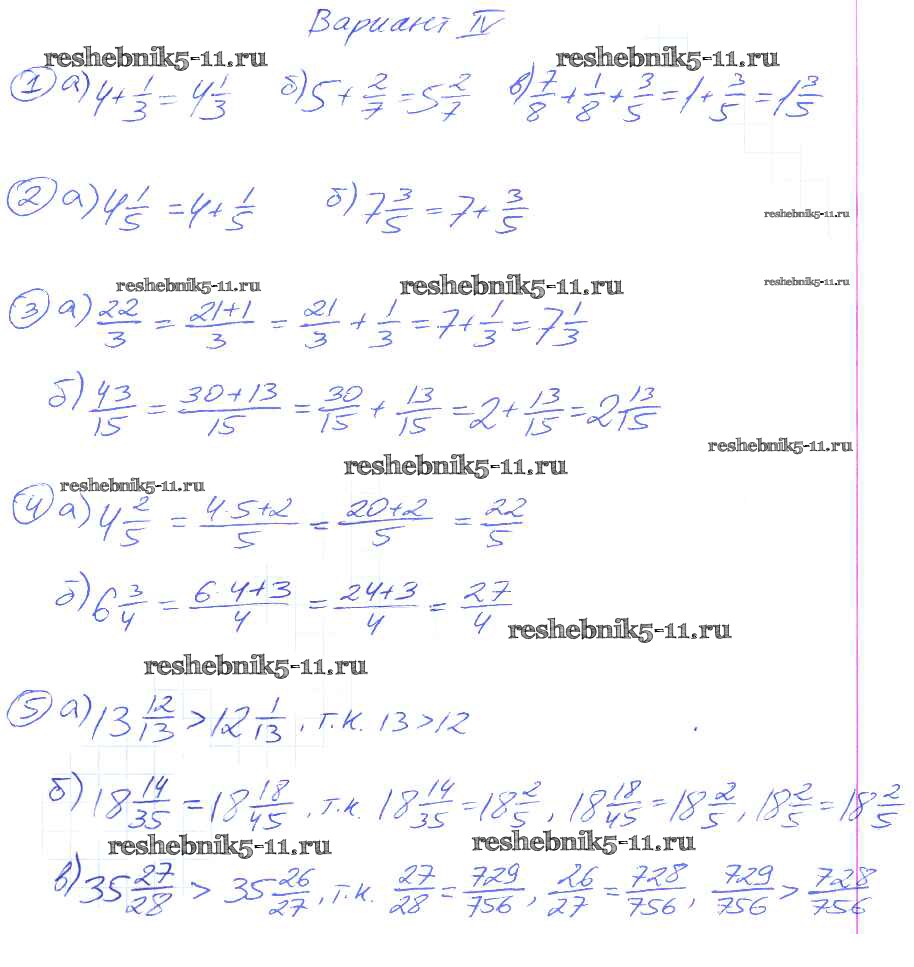 Вариант IV
reshebnik5-11.ru reshebnik5-11.ru
1 а) 4 + 1/3 = 4 1/3 б) 5 + 2/7 = 5 2/7 в) 7/8 + 1/8 + 3/5 = 1 + 3/5 = 1 3/5
2 а) 4 1/5 = 4 + 1/5 б) 7 3/5 = 7 + 3/5
reshebnik5-11.ru
reshebnik5-11.ru reshebnik5-11.ru reshebnik5-11.ru
3 а) 22/3 = (21+1)/3 = 21/3 + 1/3 = 7 + 1/3 = 7 1/3
б) 43/15 = (30+13)/15 = 30/15 + 13/15 = 2 + 13/15 = 2 13/15
reshebnik5-11.ru
reshebnik5-11.ru
reshebnik5-11.ru
4 а) 4 2/5 = (4·5+2)/5 = (20+2)/5 = 22/5
б) 6 3/4 = (6·4+3)/4 = (24+3)/4 = 27/4
reshebnik5-11.ru
reshebnik5-11.ru
5 а) 13 12/13 > 12 1/13, т.к. 13 > 12
б) 18 14/35 = 18 18/45, т.к. 18 14/35 = 18 2/5, 18 18/45 = 18 2/5, 18 2/5 = 18 2/5
reshebnik5-11.ru reshebnik5-11.ru
в) 35 27/28 > 35 26/27, т.к. 27/28 = 729/756, 26/27 = 728/756, 729/756 > 728/756